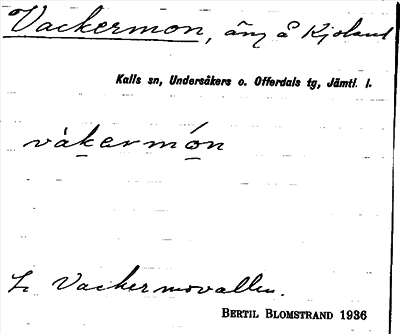 Vackermon, äng å Kjoland
Kalls sn, Undersåkers o. Offerdals tg, Jämtl. l.
vàkermón
Vackermovallen.
BERTIL BLOMSTRAND 1936